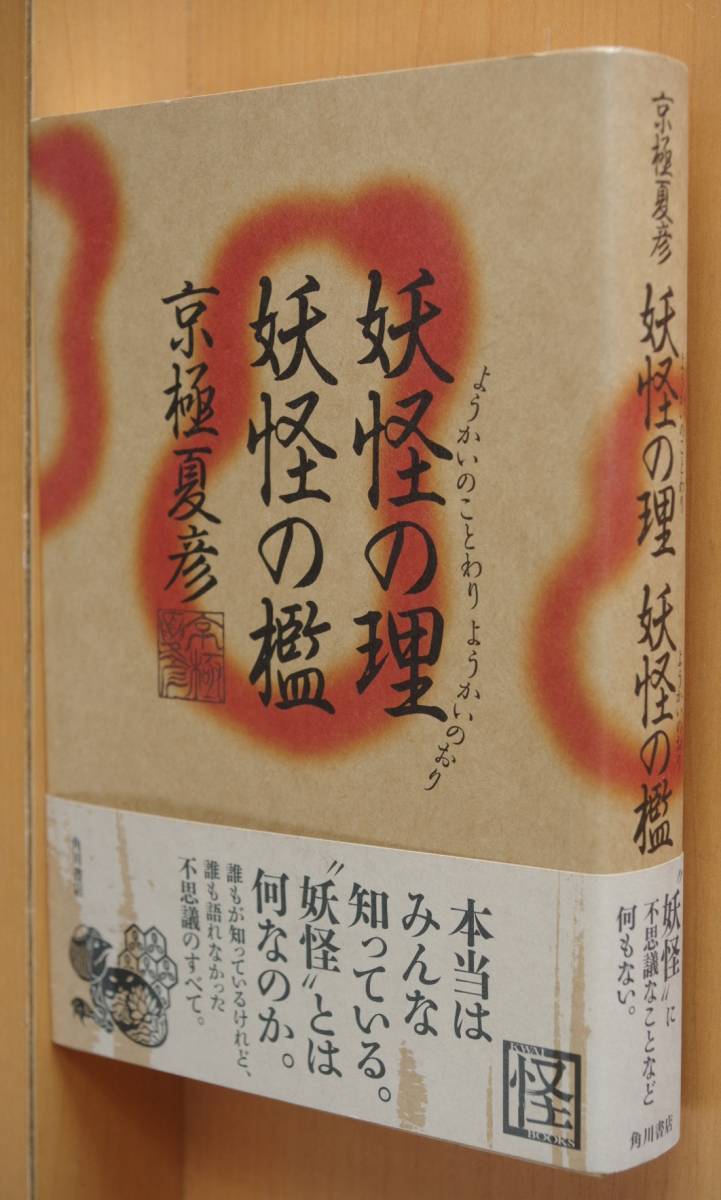 妖怪の理
ようかいのことわり
妖怪の檻
ようかいのおり
京極夏彦
京極夏彦
本当は
みんな
知っている。
〝妖怪〟とは
何なのか。
誰もが知っているけれど、
誰も語れなかった
不思議のすべて。
角川書店
KWAI
怪
BOOKS
京極夏彦
妖怪の理
ようかいのことわり
妖怪の檻
ようかいのおり
〝妖怪〟に
不思議なことなど
何もない。
角川書店